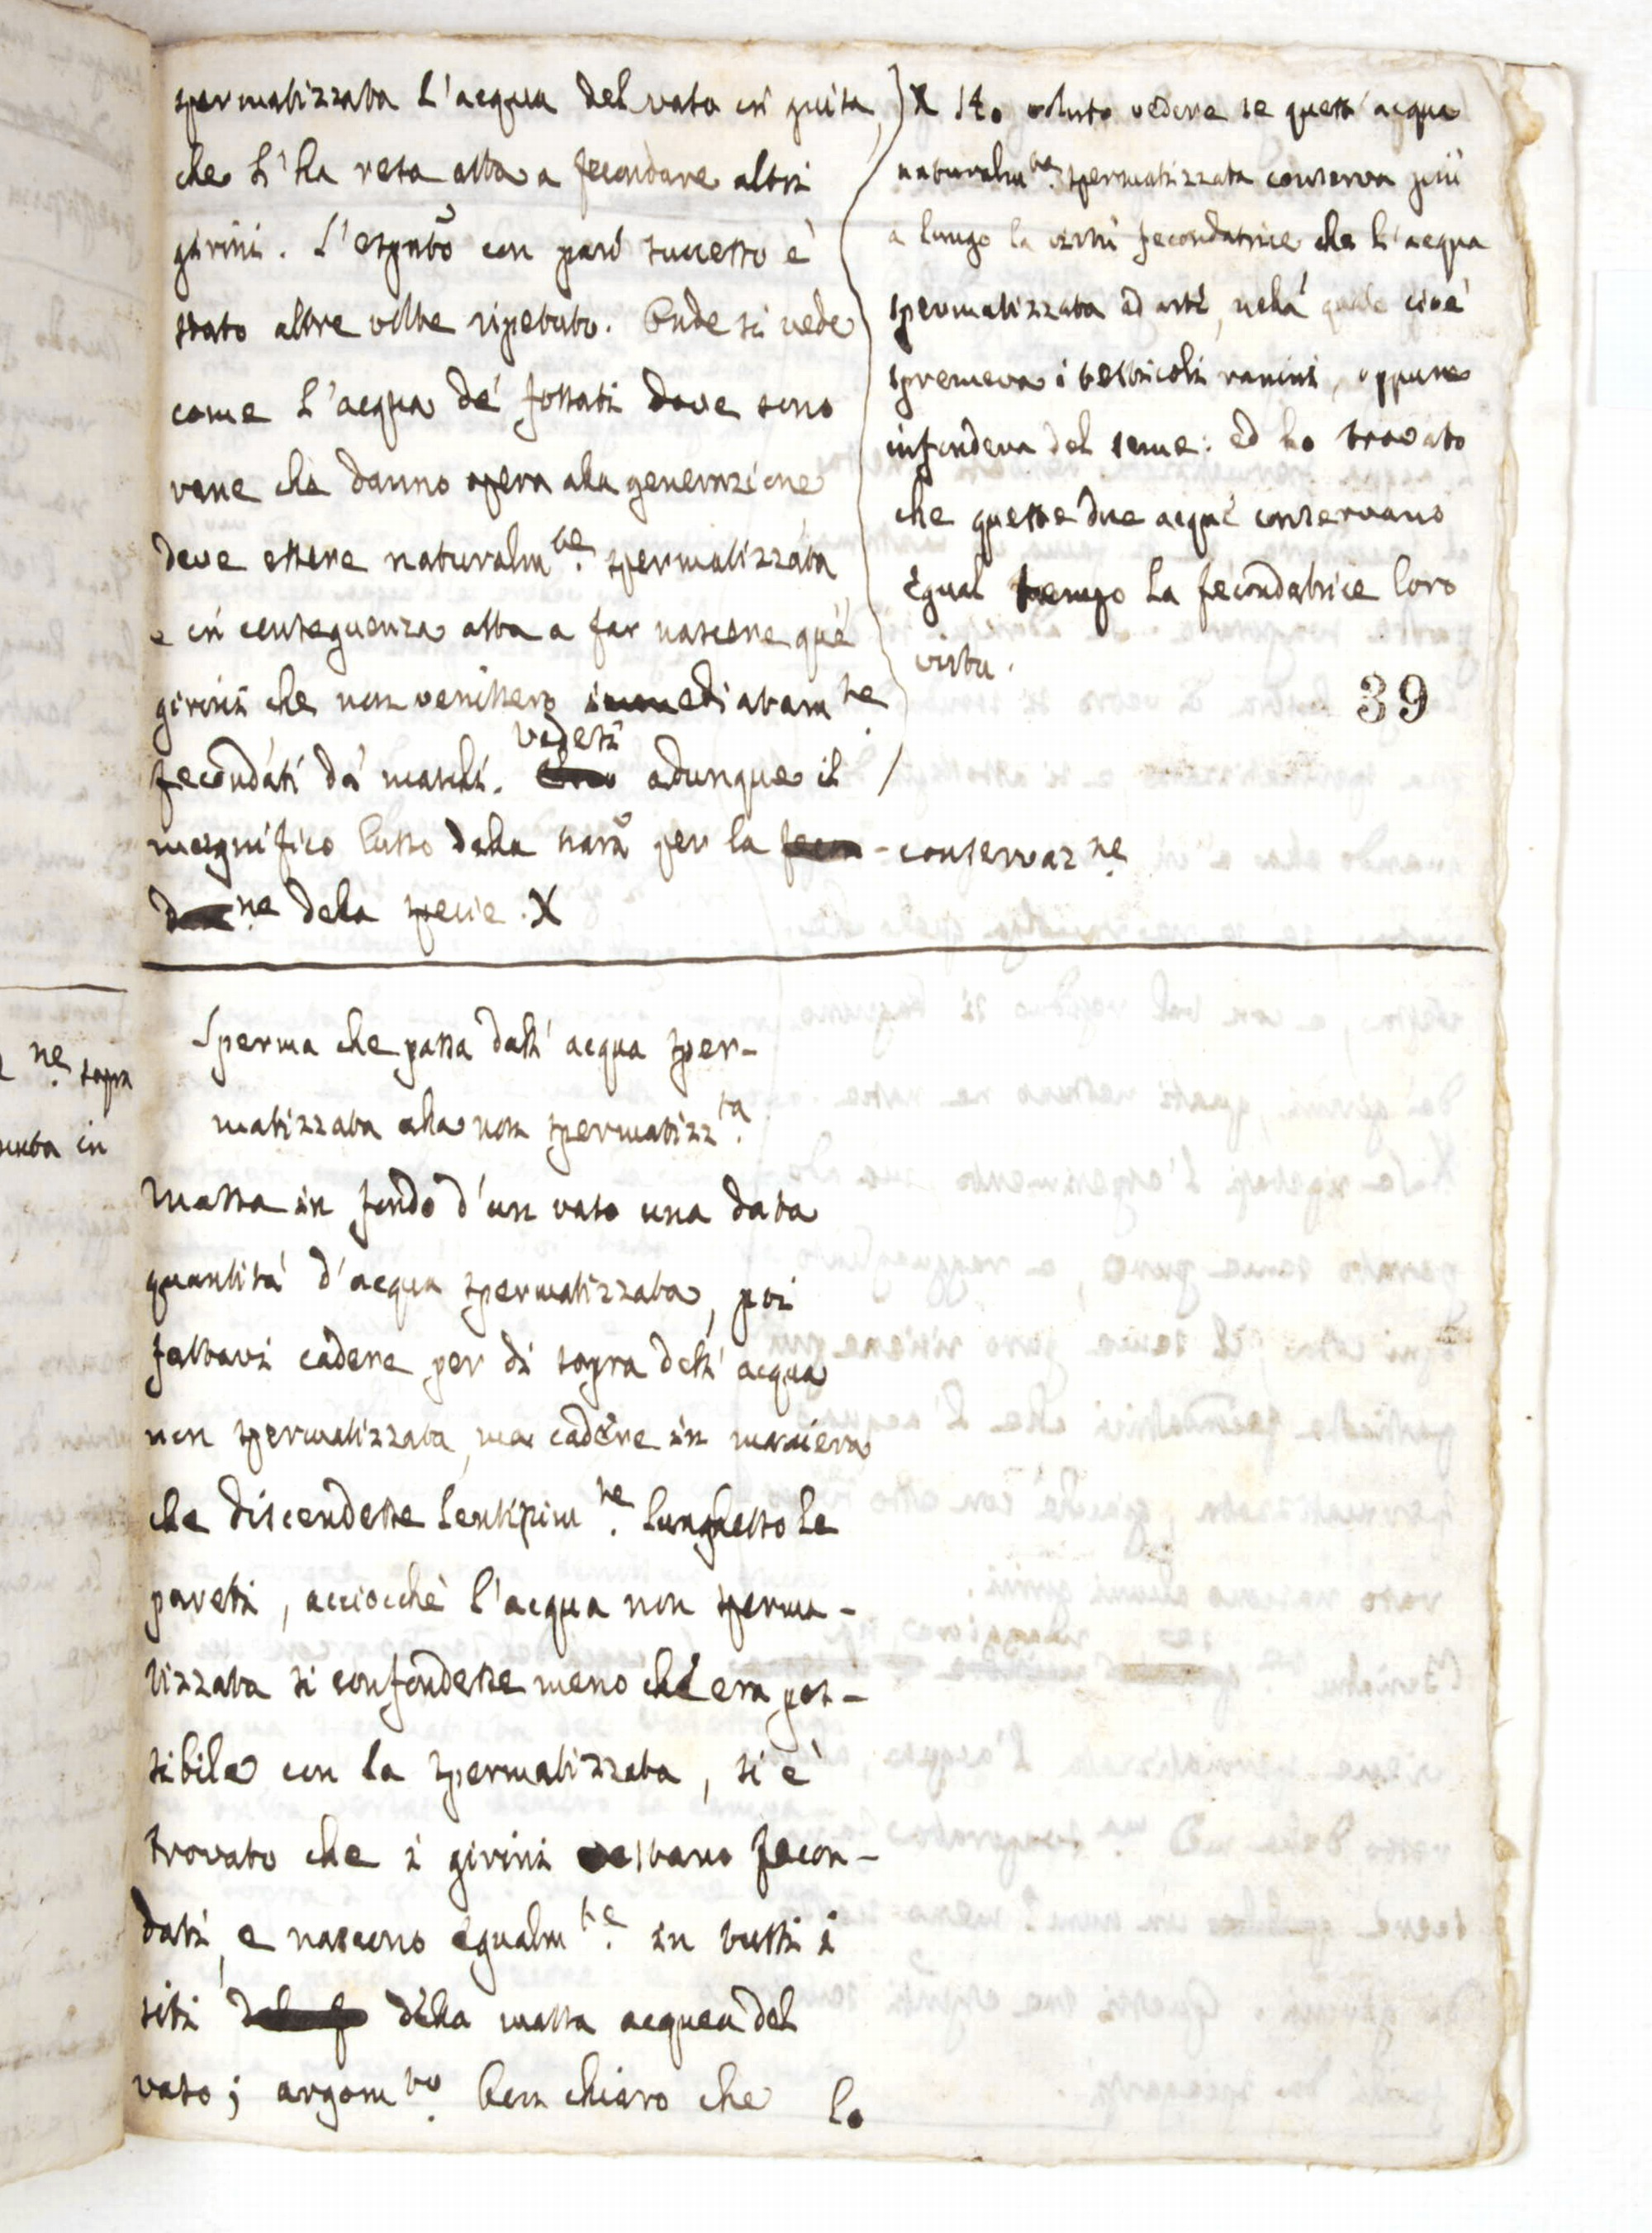 spermatizzata l'acqua del vaso in guisa,
che l'ha resa atta a fecondare altri
girini. L'espmto con pari successo è
stato altre volte ripetuto. Onde si vede
come l'acqua de' fossati dove sono
rane che danno opera alla generazione
deve essere naturalmte. spermatizzata,
e in conseguenza atta a far nascere que'
girini che non venissero immediatamte.
fecondati da' maschi. Vedesi adunque il
magnifico lusso della nata per la conservazne.
della specie. X
X Ho voluto vedere se quest' acqua
naturalmte. spermatizzata conserva più
a lungo la virtù fecondatrice che l'acqua
spermatizzata ad arte, nella quale cioè
spremeva i testicoli ranini, oppure
infondeva del seme: ed ho trovato
che queste due acque conservano
egual tempo la fecondatrice loro
virtu.
39
Sperma che passa dall' acqua sper-
matizzata alla non spermatizzta.
Messa in fondo d'un vaso una data
quantità d'acqua spermatizzata, poi
fattavi cadere per di sopra dell' acqua
non spermatizzata, ma cadere in maniera
che discendesse lentissimte. lunghesso le
pareti, acciocchè l'acqua non sperma-
tizzata si confondesse meno che era pos-
sibile con la spermatizzata, si è
trovato che i girini restano fecon-
dati, e nascono egualmte. in tutti i
siti della massa acquea del
vaso; argomto. ben chiaro che lo